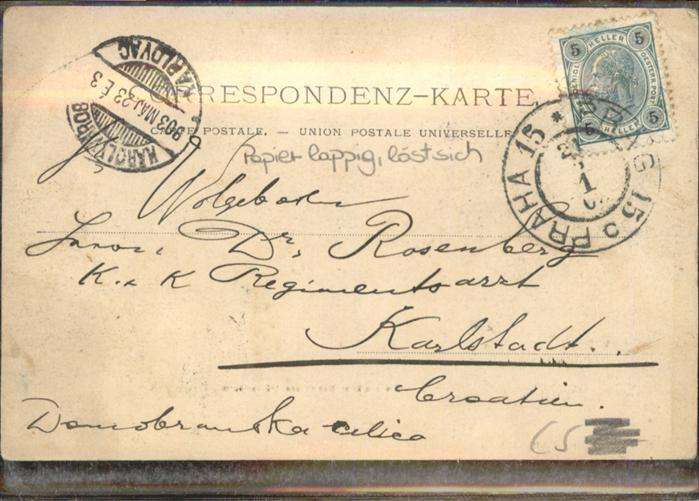 KAROLYVÁROS
903 MÁJ. 23 E. 3
KARLOVAC
CORRESPONDENZ-KARTE.
CARTE POSTALE. — UNION POSTALE UNIVERSELLE
5 HELLER 5
5 HELLER 5
PRAHA 15 * PRAG 15
1
Papier lappig, löst sich
Wolgeboren
Herrn Dr. Rosenberg
K. u K Regimentsarzt
Karlstadt.
Croatien.
Domobranska ulica